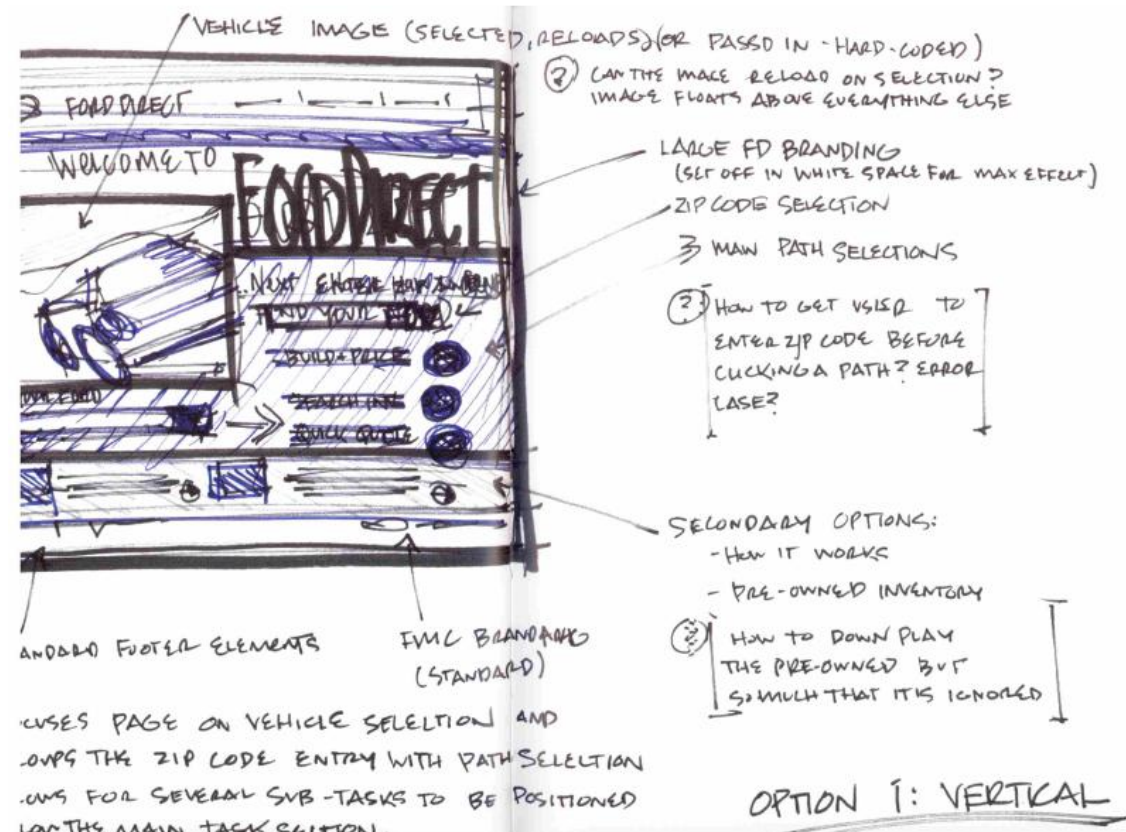 VEHICLE IMAGE (SELECTED, RELOADS) (OR PASSD IN - HARD-CODED)
? CAN THE IMAGE RELOAD ON SELECTION?
IMAGE FLOATS ABOVE EVERYTHING ELSE
FORD DIRECT
WELCOME TO
FORDDIRECT
LARGE FD BRANDING
(SET OFF IN WHITE SPACE FOR MAX EFFECT)
ZIP CODE SELECTION
3 MAIN PATH SELECTIONS
..NEXT ENTER
FIND YOUR FORD
BUILD + PRICE
SEARCH INV.
QUICK QUOTE
? HOW TO GET USER TO
ENTER ZIP CODE BEFORE
CLICKING A PATH? ERROR
CASE?
SECONDARY OPTIONS:
- HOW IT WORKS
- PRE-OWNED INVENTORY
? HOW TO DOWN PLAY
THE PRE-OWNED BUT
SO MUCH THAT IT IS IGNORED
ANDARD FOOTER ELEMENTS
FMC BRANDING
(STANDARD)
CUSES PAGE ON VEHICLE SELECTION AND
OUPS THE ZIP CODE ENTRY WITH PATH SELECTION
OWS FOR SEVERAL SUB-TASKS TO BE POSITIONED
THE MAIN TASK SECTION
OPTION 1: VERTICAL